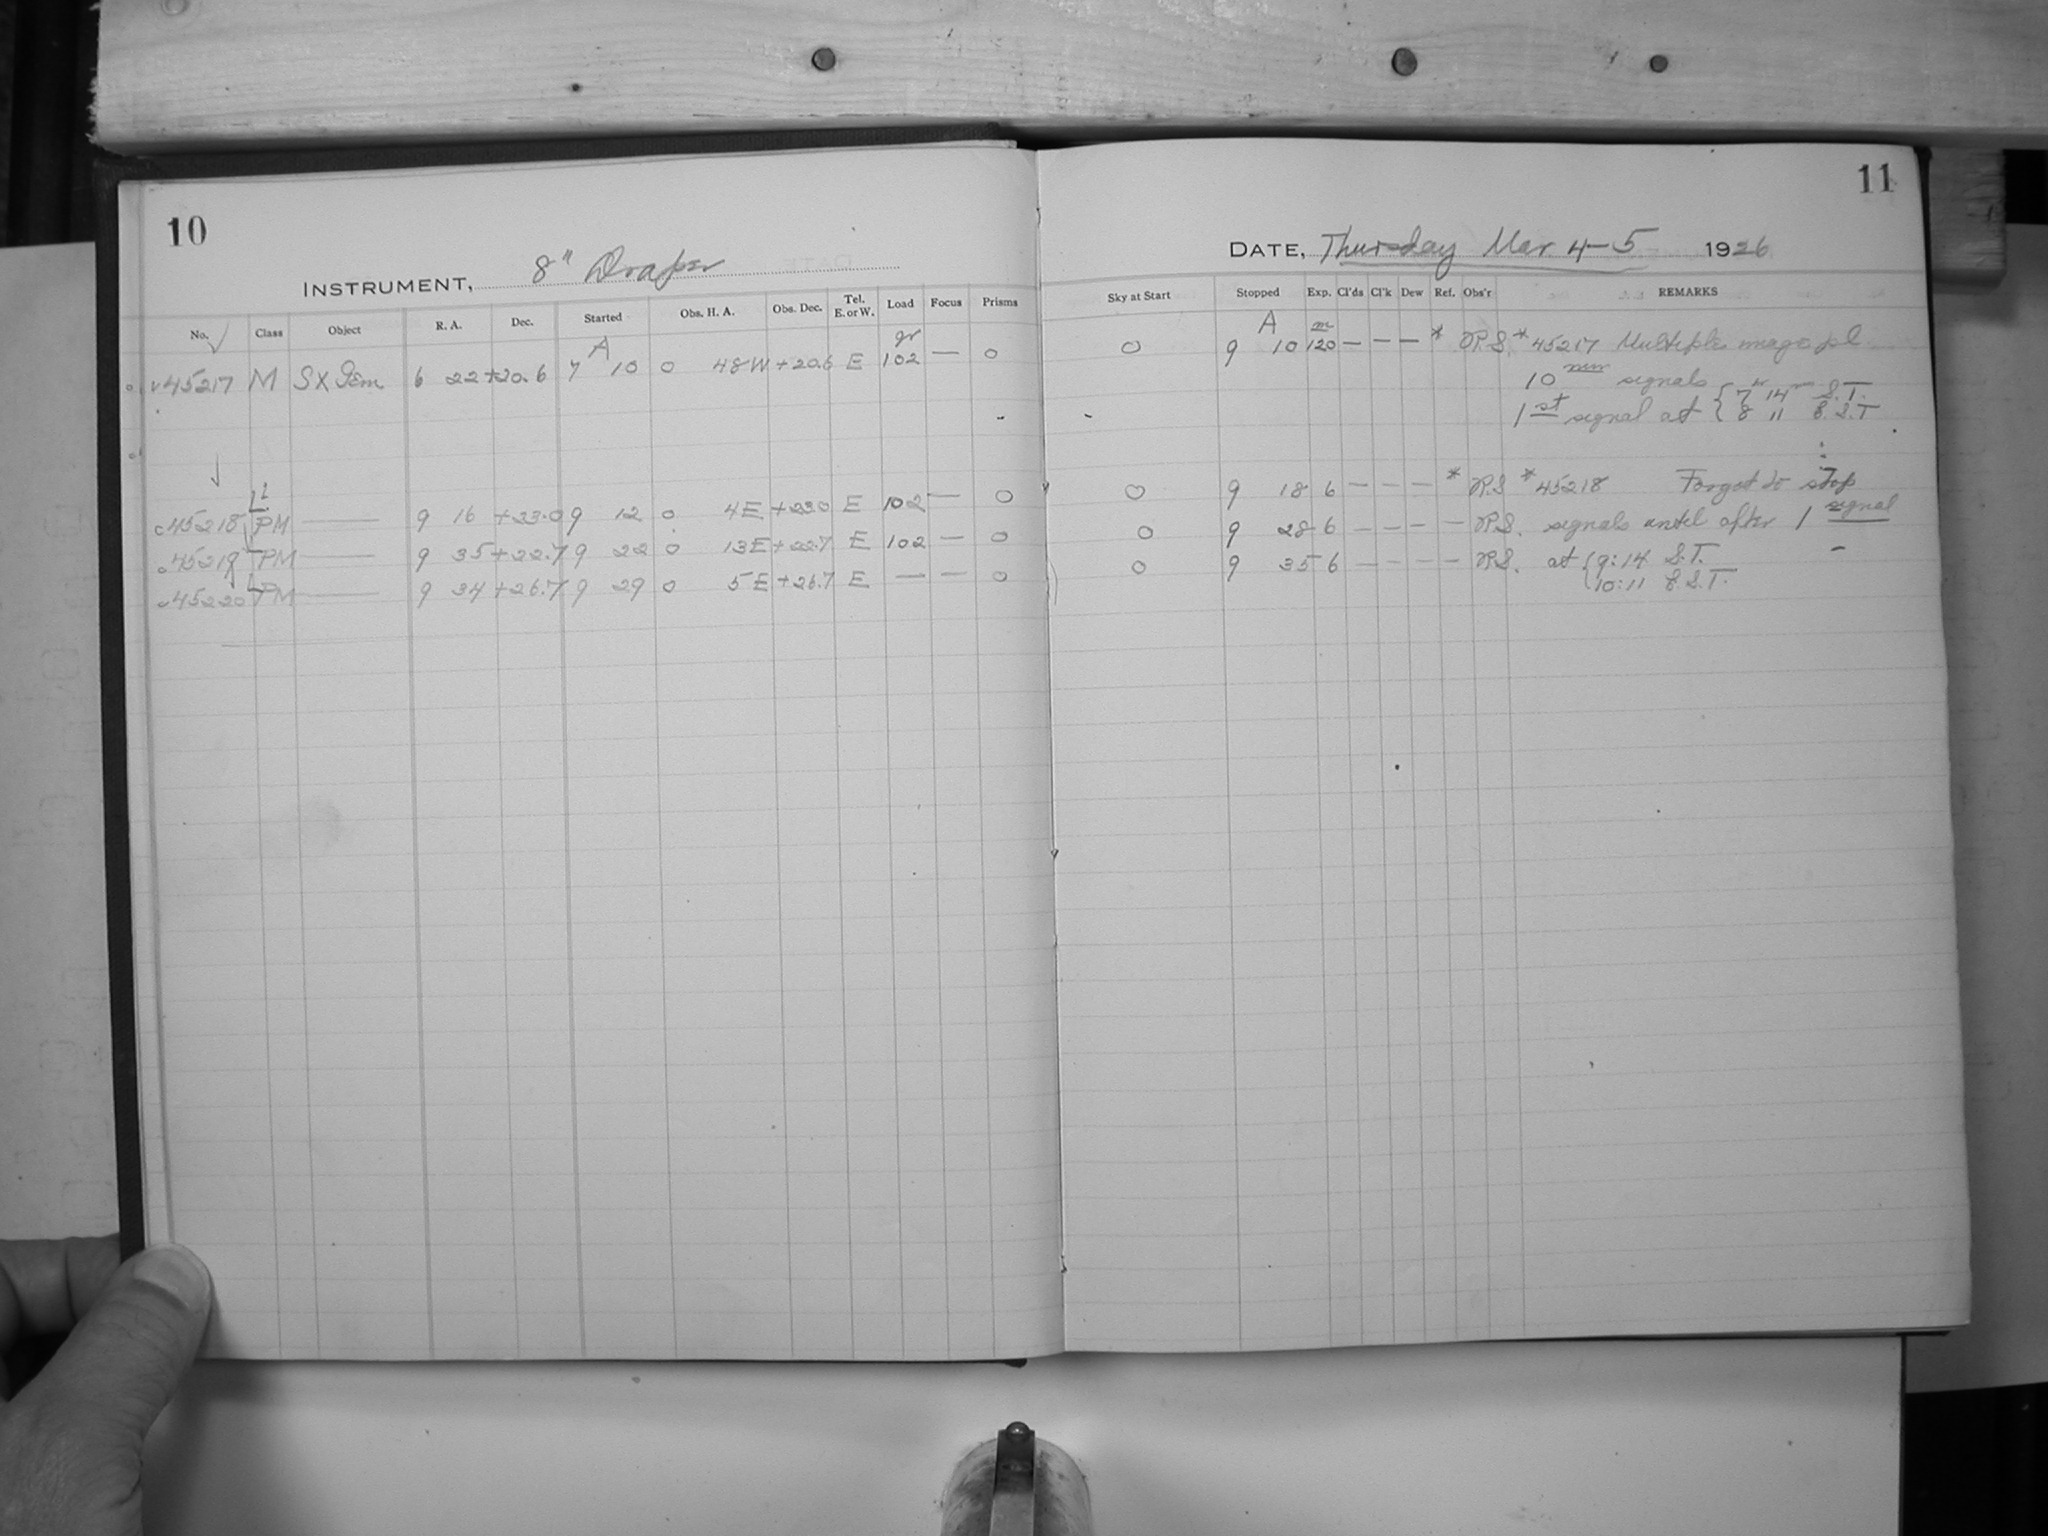 10
INSTRUMENT, 8" Draper
No. Class Object R. A. Dec. Started Obs. H. A. Obs. Dec. Tel. E. or W. Load Focus Prisms
A gr
45217 M SX Gem 6 22 +20.6 7 10 0 48W +20.6 E 102 — 0
L
45218 PM — 9 16 +23.0 9 12 0 4E +23.0 E 102 — 0
45219 PM — 9 35 +22.7 9 22 0 13E +22.7 E 102 — 0
45220 PM — 9 34 +26.7 9 29 0 5E +26.7 E — — 0
11
DATE, Thursday Mar 4-5 1926
Sky at Start Stopped Exp. Cl'ds Cl'k Dew Ref. Obs'r REMARKS
A m
0 9 10 120 — — — * R.S. * 45217 Multiple image pl
10 min signals
1st signal at { 7 hr 14 m S.T.
8 11 E.S.T
0 9 18 6 — — — * R.S * 45218 Forgot to stop
0 9 28 6 — — — — R.S. signals until after 1 signal
0 9 35 6 — — — — R.S. at { 9:14 S.T.
10:11 E.S.T.